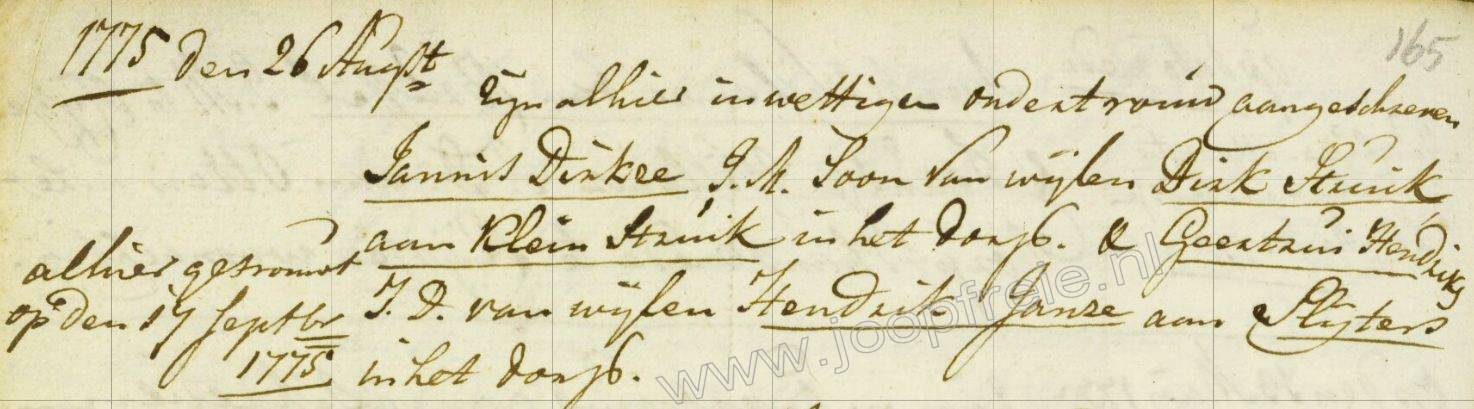 165
1775 den 26 Augst
Zijn alhier in wettigen ondertrouw aangeschreven
Jannis Dirkze J.M. Soon van wijlen Dirk Struik
aan Klein Struik in het dorp. & Geertrui Hendriks
J.D. van wijlen Hendrik Janze aan Slijters
in het dorp.
alhier getrouwt
op den 17 Septbr
1775
www.joopfreie.nl